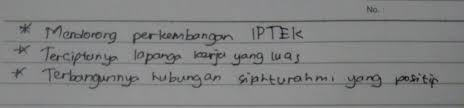 No.
* Mendorong perkembangan IPTEK
* Terciptanya lapanga kerja yang luas
* Terbangunnya hubungan siphturahmi yang positip